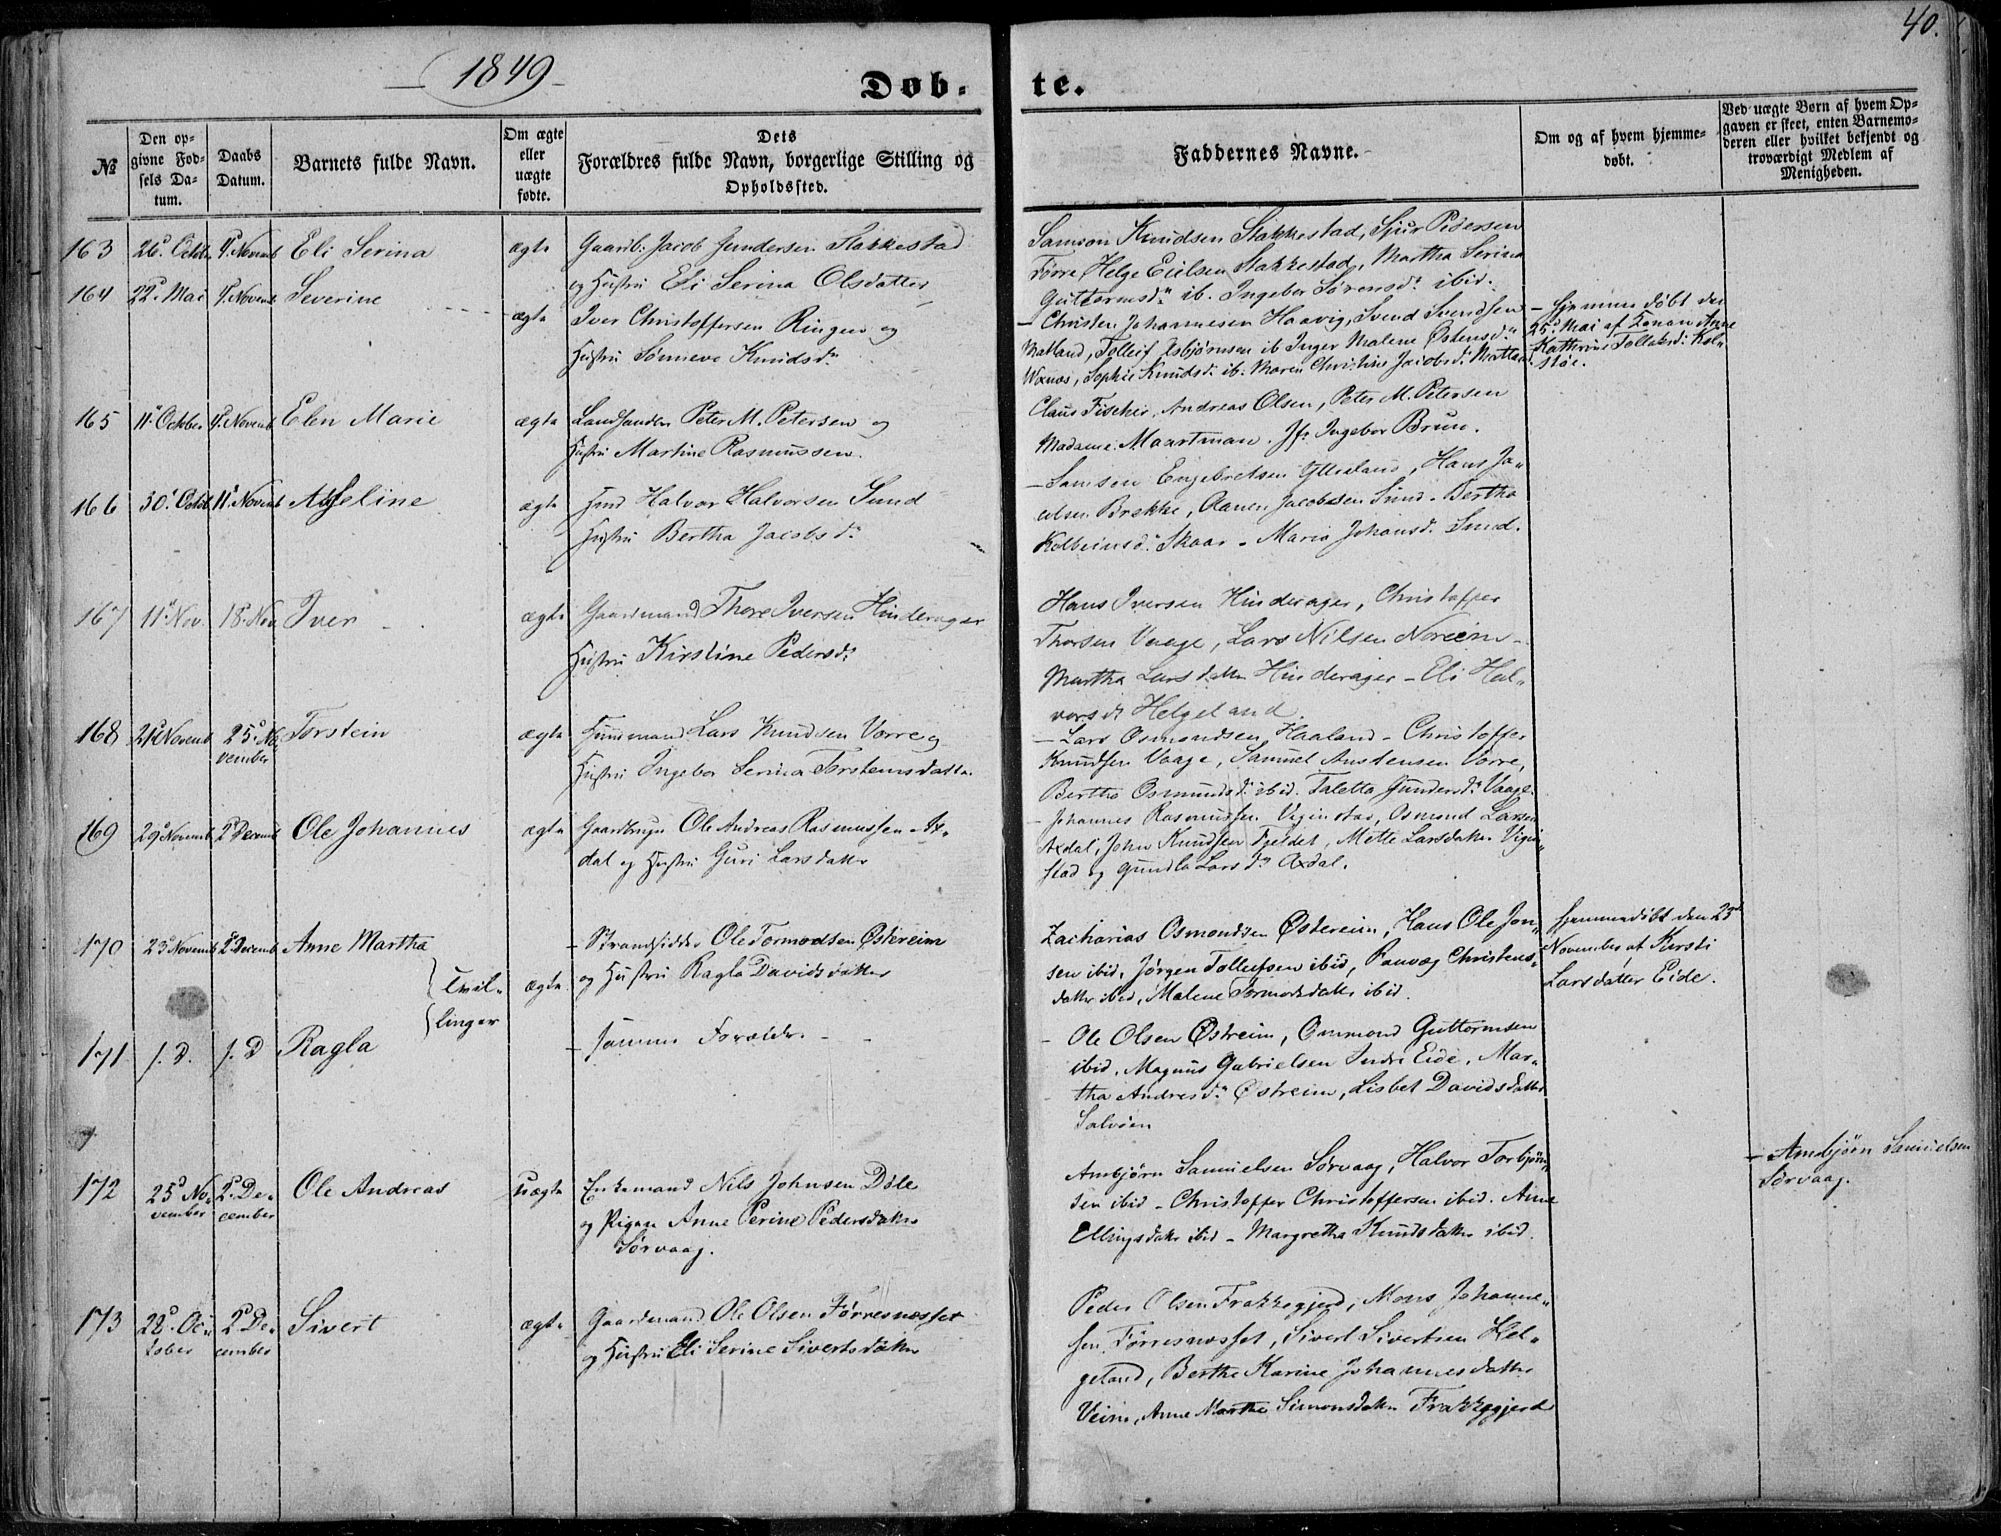 40.
1849
Døb-te.
№
Den opgivne Fødsels Datum.
Daabs Datum.
Barnets fulde Navn.
Om ægte eller uægte fødte.
Dets Forældres fulde Navn, borgerlige Stilling og Opholdssted.
Faddernes Navne.
Om og af hvem hjemmedøbt.
Ved uægte Børn af hvem Opgaven er skeet, enten Barnemoderen eller hvilket bekjendt og troværdigt Medlem af Menigheden.
163 26. Octbr 4. Novemb Eli Serina ægte Gaardb: Jacob Gundersen Stakkestad
og Hustru Eli Serina Olsdatter
Samson Knudsen Stakkestad, Sjur Pedersen
Førre, Helge Eielsen Stakkestad, Martha Serina
Guttormsd. ib. Ingebor Sørensd. ibid.
164 22. Mai 4. Novemb Severine ægte Iver Christoffersen Ringen og
Hustru Sønneve Knudsd.
Christen Johannesen Haavig, Svend Svendsen
Matland, Tolleif Esbjørnsen ib Inger Malene Østensd.
Waxnæs, Sophie Knudsd. ib. Maren Christine Jacobsd.
Hjemmedøbt den
25. Mai af Konen Anne
Katherine Tollaksd.
165 11. October 4. Novemb Elen Marie ægte Landhandler Peter M. Petersen og
Hustru Martine Rasmussen.
Claus Fischer, Andreas Olsen, Peter M. Petersen
Madame Maartman. Jfr Ingebor Brun.
166 30. Octob 11. Novemb Aseline ægte Halvor Halvorsen Sund
Hustru Bertha Jacobsd.
Samson Engebretsen, Hans Ja-
cobsen Brekke, Jacobsen Sund - Bertha
Kolbeinsd. Skaar - Maria Johansd. Sund.
167 11. Nov. 18. Nov Iver ægte Gaardmand Thore Iversen Hinderager
Hustru Kirstine Pedersd.
Hans Iversen Hinderager, Christoffer
Thorsen Vaage, Lars Nilsen Noreim -
Martha Larsdatter Hinderager - Eli Hal-
vorsd. Helgeland
168 21. Novemb 25. No-
vember Torstein ægte Huusmand Lars Knudsen Vorre og
Hustru Ingebor Serina Torstensdatter
Lars Osmondsen Haaland - Christoffer
Knudsen Vaage, Samuel Austensen Vorre,
Bertha Osmundsd. ibid. Taletta Gundersd. Vaage.
169 29 Novemb 2 Decemb Ole Johannes ægte Gaardbruger Ole Andreas Rasmussen Ax-
dal og Hustru Guri Larsdatter
Johannes Rasmussen Viginstad, Osmond Larsen
Axdal, John Knudsen Fjeldet, Mette Larsdatter Vigin-
stad og Gunilla Larsd. Axdal.
170 23 Novemb 2 Decemb Anne Martha Strandsidder Ole Tormodsen Østreim
Tvil-
linger ægte og Hustru Ragla Davidsdatter
Zacharias Osmondsen Østreim, Hans Ole Jon-
sen ibid, Jørgen Tollefsen ibid, Christens-
datter ibid, Malene Tormodsdatter ibid.
Hjemmedøbt den 23
November af Kirsti
Larsdatter Eide.
171 s. D. s. D Ragla - samme Forældre. -
Ole Olsen Østreim, Ommond Guttormsen
ibid, Magnus Gabrielsen Indre Eide, Mar-
tha Andresd. Østreim, Lisbet Davidsdatter
Salvøen
172 25 No-
vember 2. De-
cember Ole Andreas uægte Enkemand Nils Johnsen Døle
og Pigen Anne Perine Pedersdatter
Sørvaag.
Ambjørn Samuelsen Sørvaag, Halvor Torbjørn-
sen ibid - Christoffer Christoffersen ibid. Anne
Ellingsdatter ibid - Margretha Knudsdatter ibid.
- Ambjørn Samuelsen
Sørvaag.
173 22. Oc-
tober 2 De-
cember Sivert ægte Gaardmand Ole Olsen Førresnæsset
og Hustru Eli Serine Sivertsdatter
Peder Olsen Frakkegjerd, Mons Johanne-
sen Førresnæsset, Sivert Sivertsen Hel-
geland, Berthe Karine Johannesdatter
Veim, Anne Marthe Simonsdatter Frakkegjerd